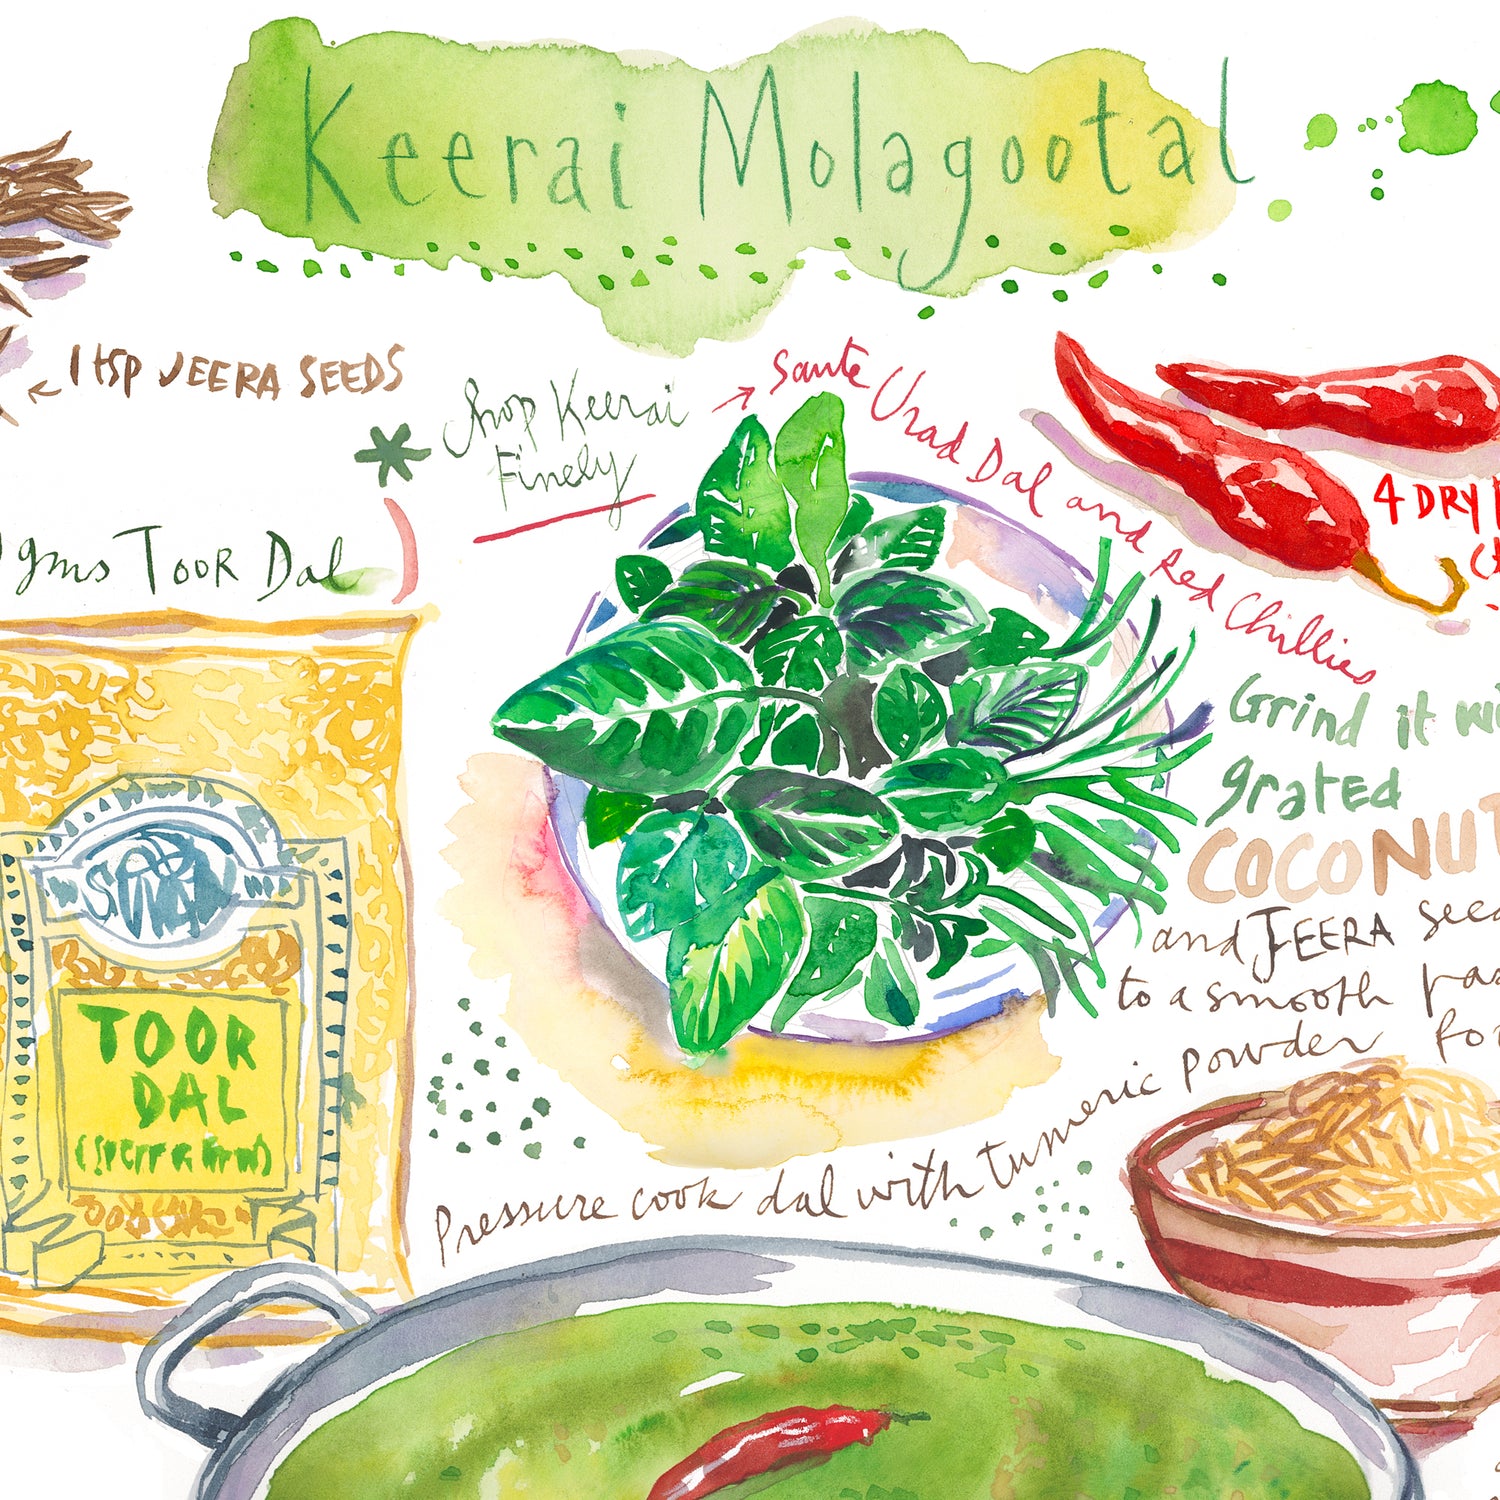 Keerai Molagootal
1 tsp JEERA SEEDS
Chop Keerai
Finely
Saute Urad Dal and Red Chillies
4 DRY
gms TOOR Dal
Grind it
grated
COCONUT
and JEERA
to a smooth
Pressure cook dal with tumeric powder
TOOR
DAL